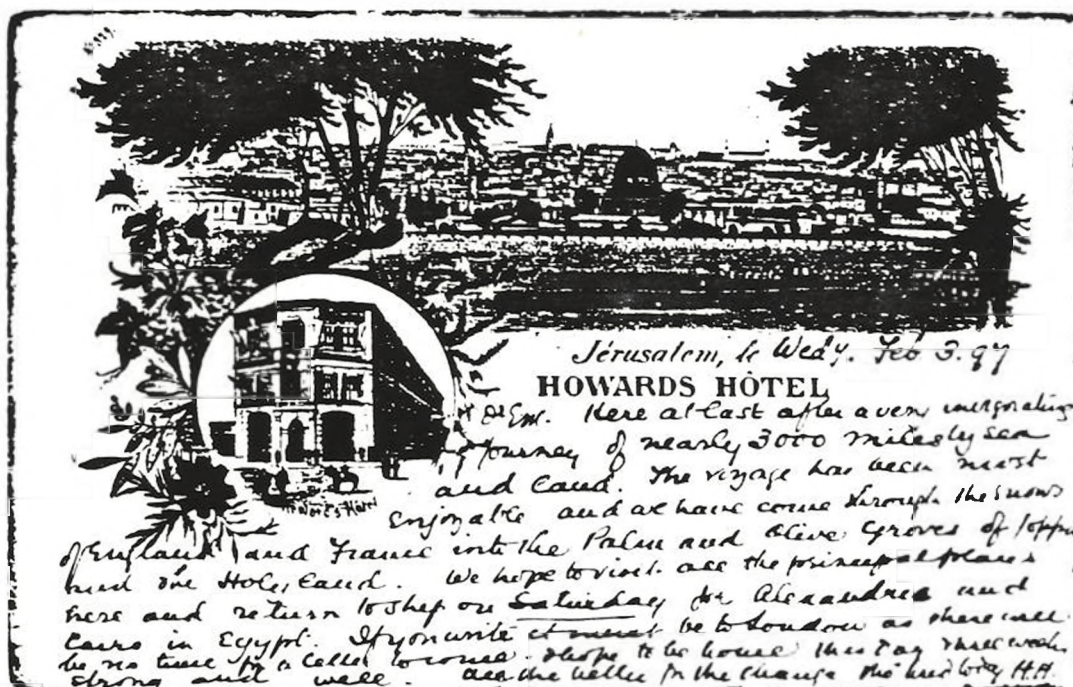 Jérusalem, le Wedy. Feb 3. 97
HOWARDS HÒTEL
Dr Em. Here at last after a very invigorating
journey of nearly 3000 miles by sea
and land. The voyage has been most
Howard's Hotel
enjoyable and we have come through the snows
of England and France into the Palm and Olive Groves of Joppa
and the Holy Land. We hope to visit all the principal places
here and return to ship on Saturday for Alexandria and
Cairo in Egypt. If you write it must be to London as there will
be no time for a letter to come. I hope to be home this day three weeks
strong and well. All the better for the change H.H.